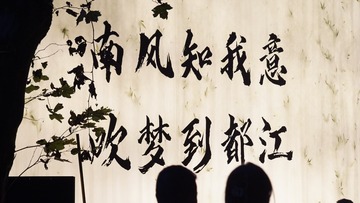 南风知我意
吹梦到都江